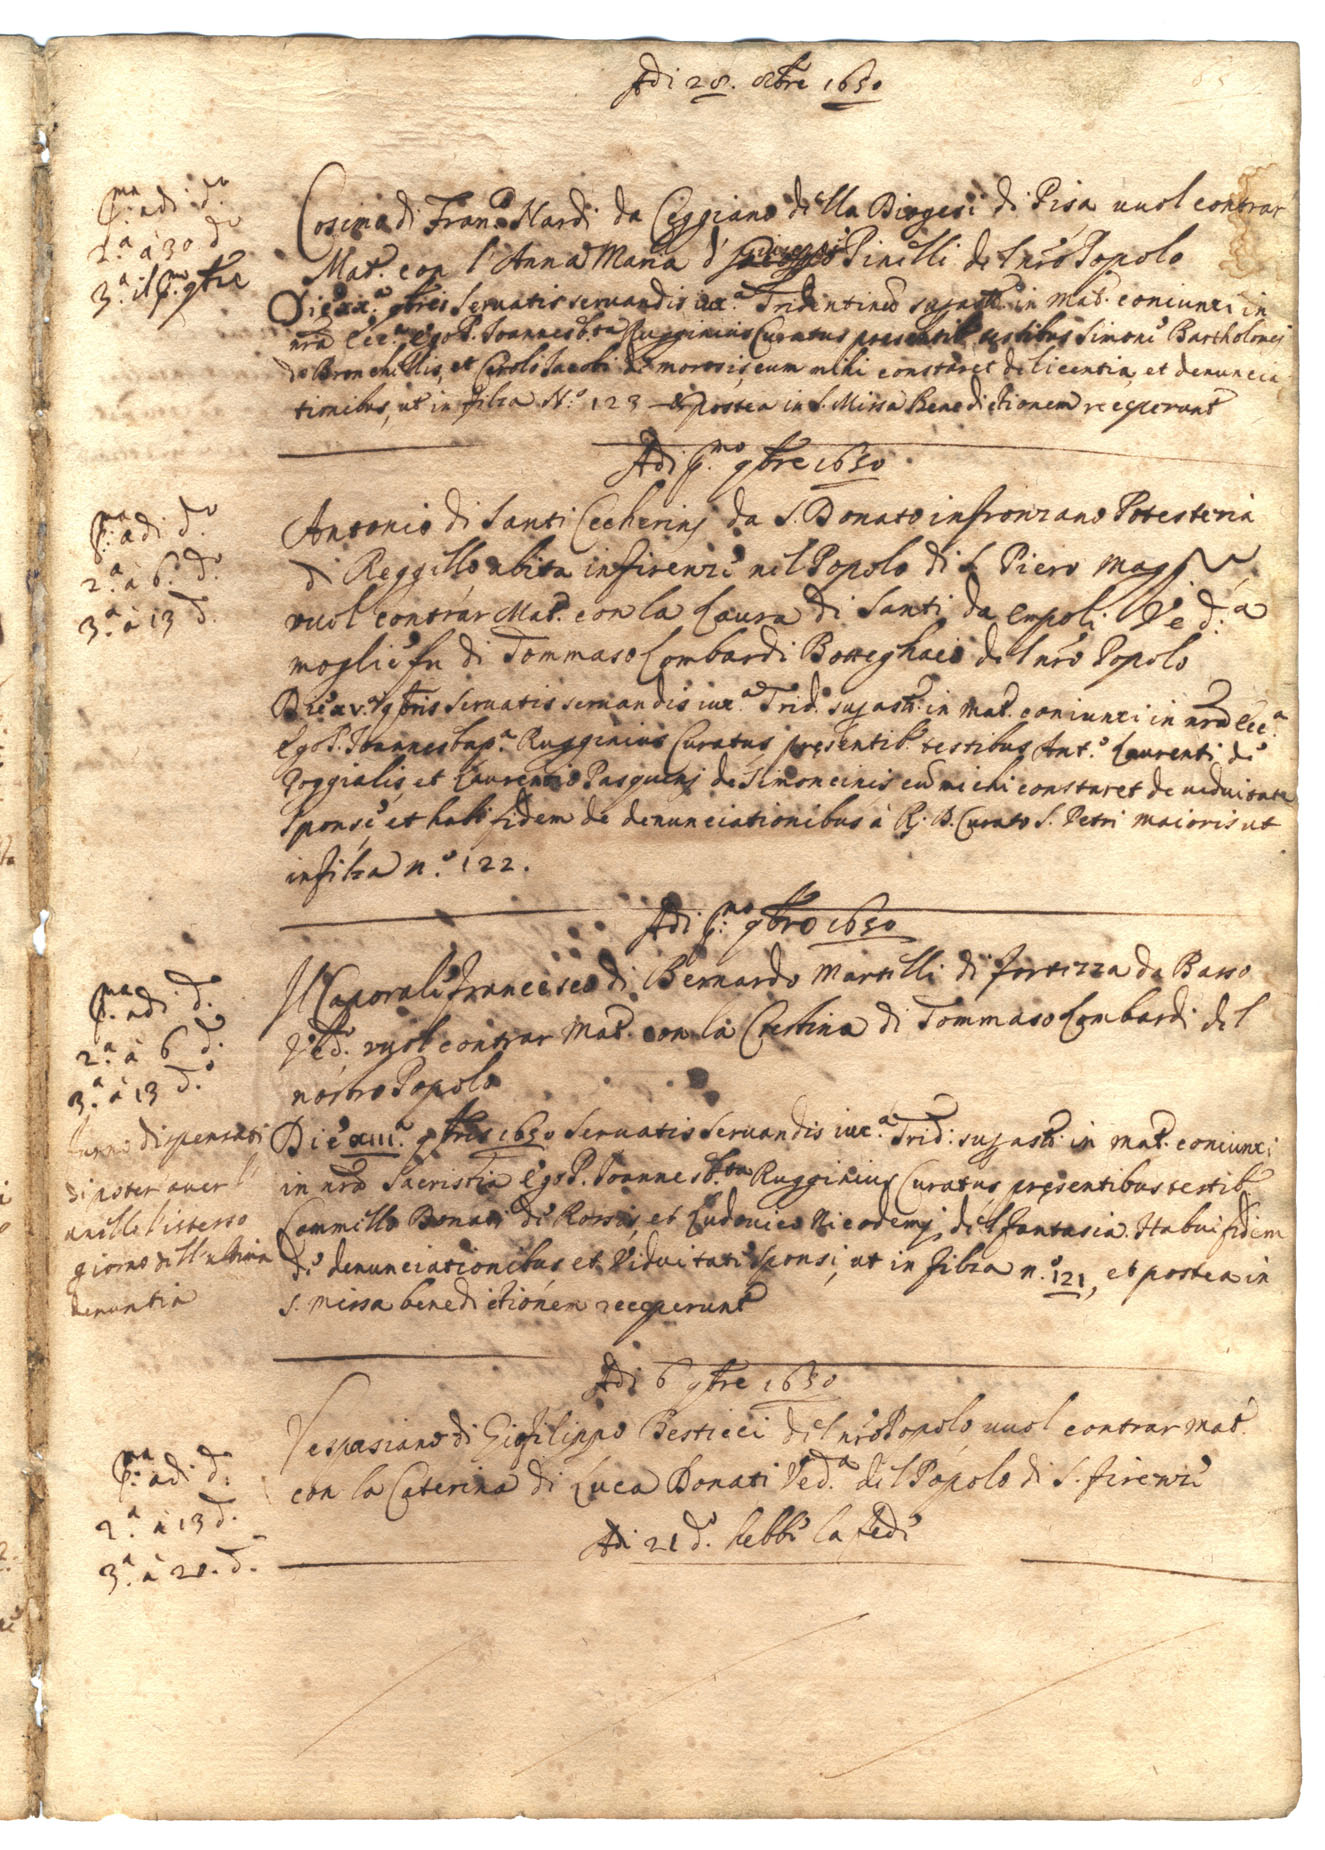 Adi 28. 8bre 1650
p.ma adi d.o
2.a à 30 d.o
3.a il p.mo 9bre
Cosimo di Fran.o Nardi da Ceggiano della Diogesi di Pisa vuol contrar
Mat.o con l'Anna Maria d' Pinelli del nro Popolo
Die xx.a 9bris servatis servandis iux.a Tridentino supras.ti in Mat.o coniunxi in
nra Ecc.a Ego P. Joannes Bta Rugginius Curatus presentib. testibus Simone Bartholomei
de Bronchellis, et Carolo Jacobi de morosis, cum mihi constaret de licentia, et denuncia
tionibus, ut in filza N.o 123 et postea in S. Missa Benedictionem receperunt
Adi p.mo 9bre 1650
p.ma adi d.o
2.a à 6. d.o
3.a à 13 d.
Antonio di Santi Cecherinj da S. Donato infronzano Potesteria
di Reggello abita in firenze nel Popolo di S. Piero Magg.re
vuol contrar Mat.o con la Laura di Santi da Empoli Ved.a
moglie fu di Tommaso Lombardi Botteghaio del nro Popolo
Die xv.a 9bris servatis servandis iux.a Trid. supras.ti in Mat.o coniunxi in nra Ecc.a
Ego P. Joannes bap.a Rugginius Curatus presentib. testibus Ant.o Laurentij de
Poggialis, et Laurentio Pasquinj de Simoncinis cum michi constaret de viduitate
sponse, et habui fidem de denunciationibus à R. D. Curato S. Petri maioris ut
in filza n.o 122.
Adi p.mo 9bre 1650
p.ma adi d.
2.a à 6 d.
3.a à 13 d.o
furno dispensati
di poter aver l'
anello l'istesso
giorno dell'ultima
denuntia
Il Caporale francesco di Bernardo Martelli di fortezza da Basso
Ved.o vuol contrar Mat.o con la Cortina di Tommaso Lombardi del
nostro Popolo
Die XIII.a 9bris 1650 servatis servandis iux.a Trid: supras.ti in mat.o coniunxi
in nra Sacristia Ego P. Joannes B.ta Rugginius Curatus, presentibus testib.
Cammillo Donati de Rossis, et Ludovico Nicodemj del fantasia. Habui fidem
de denunciationibus et viduitati sponsi, ut in filza n.o 121, et postea in
S. missa benedictionem receperunt
Adi 6 9bre 1650
p.ma adi d.
2.a à 13 d.
3.a à 20. d.
Vespasiano di Gio filippo Besticci del nro Popolo, vuol contrar mat.o
con la Caterina di Luca Donati Ved.a del Popolo di S. firenze
Adi 21 d.o hebbe la fede